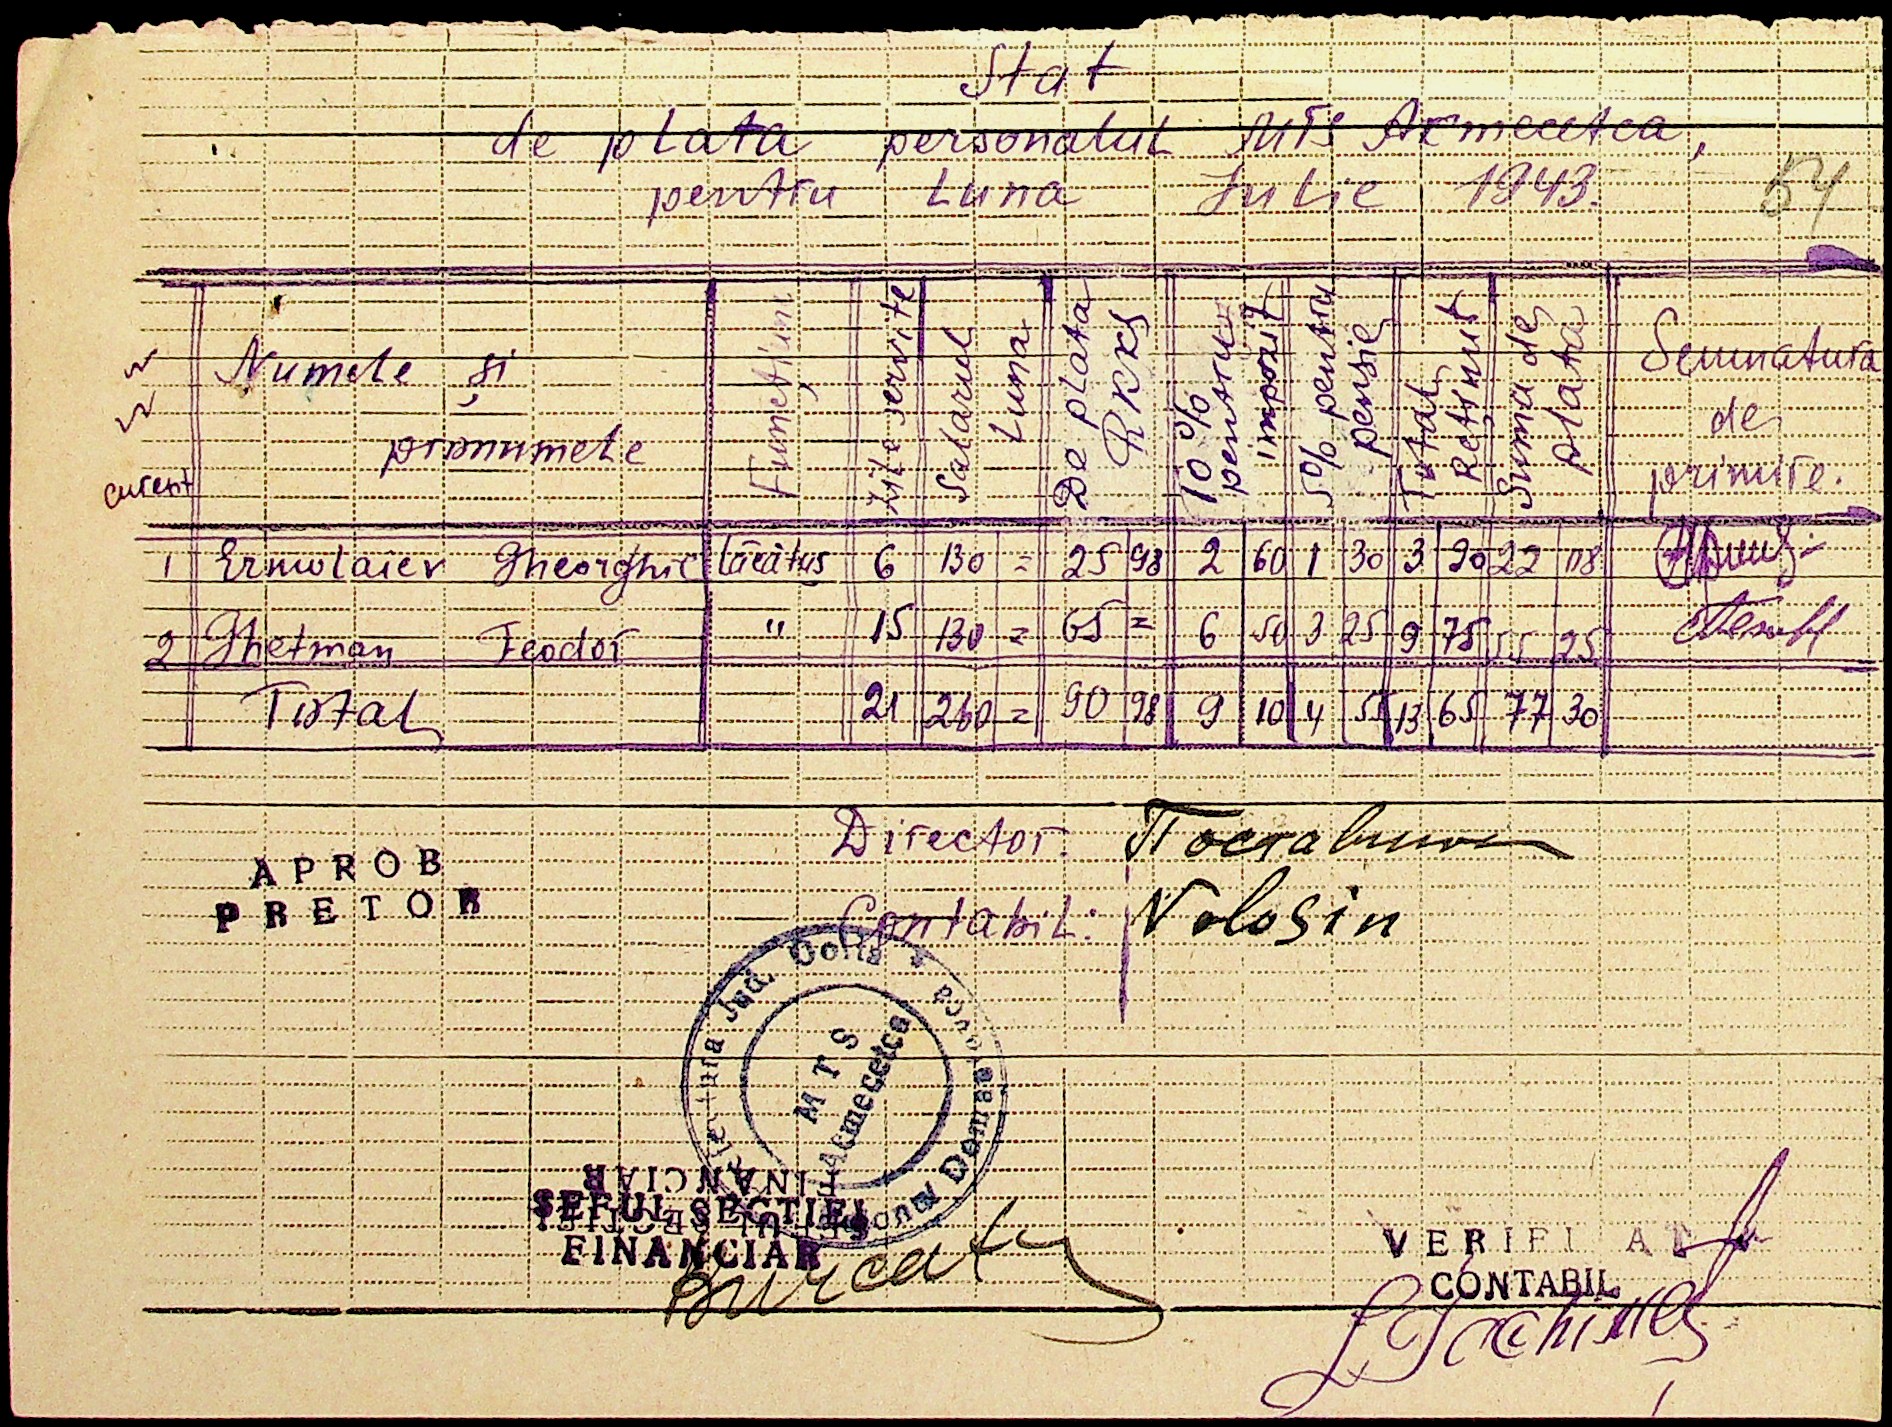 Stat
de plata personalul MTS Acmecetca,
pentru Luna Iulie 1943.
54
curent
Numele și
pronumele
Funcțiuni
Zile servite
Salariul Luna
De plata RKKS
10% pentru impozit
5% pentru pensie
Total Reținut
Suma de plata
Semnatura
de
primire.
1 Ermolaiev Gheorghie lăcătus 6 130 = 25 98 2 60 1 30 3 90 22 08
2 Ghetman Feodor " 15 130 = 65 = 6 50 3 25 9 75 55 25
Total 21 260 = 90 98 9 10 4 55 13 65 77 30
Director:
Contabil: Volosin
APROB
PRETOR
Jud. Golta
MTS
Acmecetca
Domanevca
FINANCIAR
SEFUL SECTIEI
SEFUL SECTIEI
FINANCIAR
VERIFI AT
CONTABIL